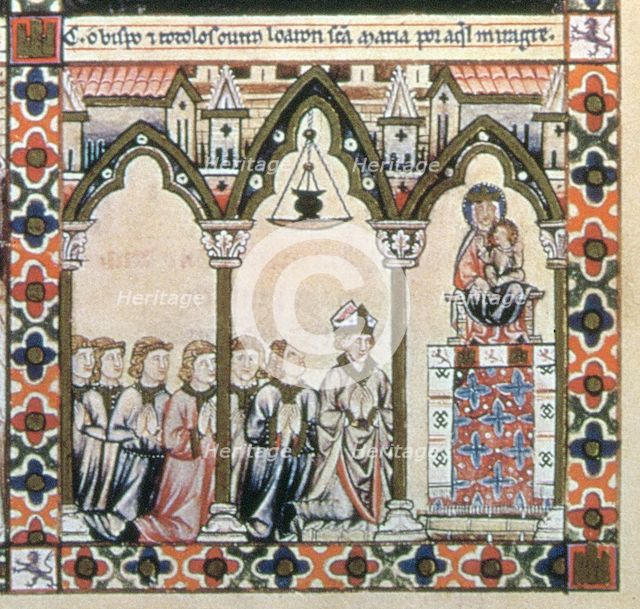 C. o bispo ⁊ todolos outrͦs loaron sc̃a maria por aq̃l miragre.
Heritage Heritage
Heritage Heritage
Heritage Heritage